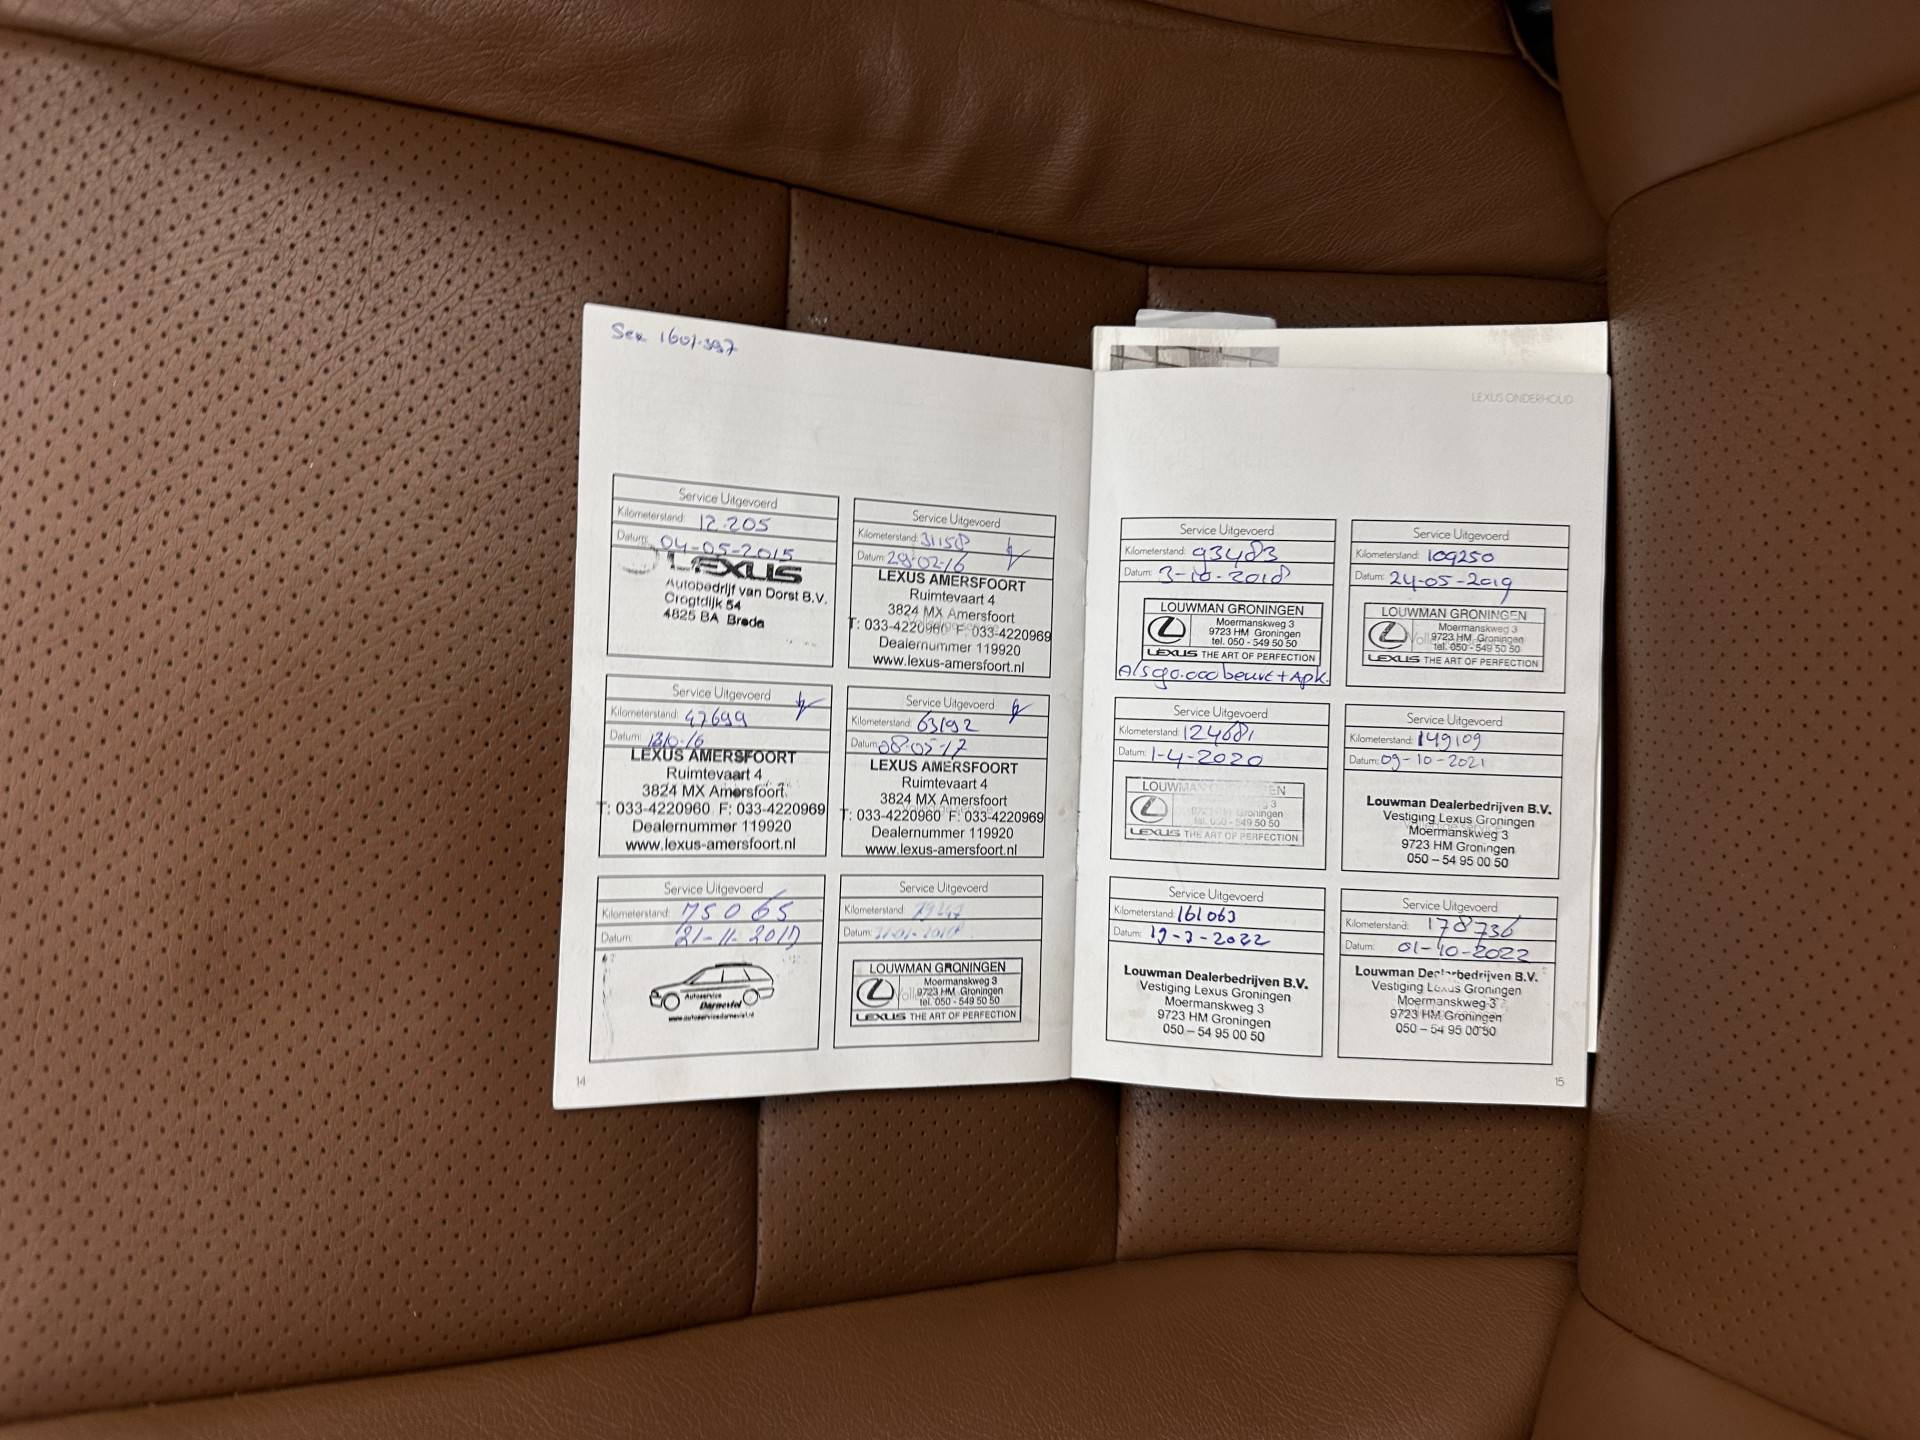 Ser 1601397
Service Uitgevoerd
Kilometerstand: 12.205
Datum: 04-05-2015
LEXUS
Autobedrijf van Dorst B.V.
Crogtdijk 54
4825 BA Breda
Service Uitgevoerd
Kilometerstand: 31158
Datum: 29-02-16
LEXUS AMERSFOORT
Ruimtevaart 4
3824 MX Amersfoort
T: 033-4220960 F: 033-4220969
Dealernummer 119920
www.lexus-amersfoort.nl
Service Uitgevoerd
Kilometerstand: 47699
Datum: 1310-16
LEXUS AMERSFOORT
Ruimtevaart 4
3824 MX Amersfoort
T: 033-4220960 F: 033-4220969
Dealernummer 119920
www.lexus-amersfoort.nl
Service Uitgevoerd
Kilometerstand: 63192
Datum: 08-05-17
LEXUS AMERSFOORT
Ruimtevaart 4
3824 MX Amersfoort
T: 033-4220960 F: 033-4220969
Dealernummer 119920
www.lexus-amersfoort.nl
Service Uitgevoerd
Kilometerstand: 75065
Datum: 21-11-2017
Autoservice
Darneviel
www.autoservicedarneviel.nl
Service Uitgevoerd
Kilometerstand:
Datum:
LOUWMAN GRONINGEN
Moermanskweg 3
9723 HM Groningen
tel. 050 - 549 50 50
LEXUS THE ART OF PERFECTION
14
LEXUS ONDERHOUD
Service Uitgevoerd
Kilometerstand: 93483
Datum: 3-10-2018
LOUWMAN GRONINGEN
Moermanskweg 3
9723 HM Groningen
tel. 050 - 549 50 50
LEXUS THE ART OF PERFECTION
Als 90.000 beurt + Apk.
Service Uitgevoerd
Kilometerstand: 109250
Datum: 24-05-2019
LOUWMAN GRONINGEN
Moermanskweg 3
9723 HM Groningen
tel. 050 - 549 50 50
LEXUS THE ART OF PERFECTION
Service Uitgevoerd
Kilometerstand: 124681
Datum: 1-4-2020
LOUWMAN GRONINGEN
3
9723 HM Groningen
tel. 050 - 549 50 50
LEXUS THE ART OF PERFECTION
Service Uitgevoerd
Kilometerstand: 149109
Datum: 09-10-2021
Louwman Dealerbedrijven B.V.
Vestiging Lexus Groningen
Moermanskweg 3
9723 HM Groningen
050 – 54 95 00 50
Service Uitgevoerd
Kilometerstand: 161063
Datum: 19-3-2022
Louwman Dealerbedrijven B.V.
Vestiging Lexus Groningen
Moermanskweg 3
9723 HM Groningen
050 – 54 95 00 50
Service Uitgevoerd
Kilometerstand: 178736
Datum: 01-10-2022
Louwman Dealerbedrijven B.V.
Vestiging Lexus Groningen
Moermanskweg 3
9723 HM Groningen
050 – 54 95 00 50
15